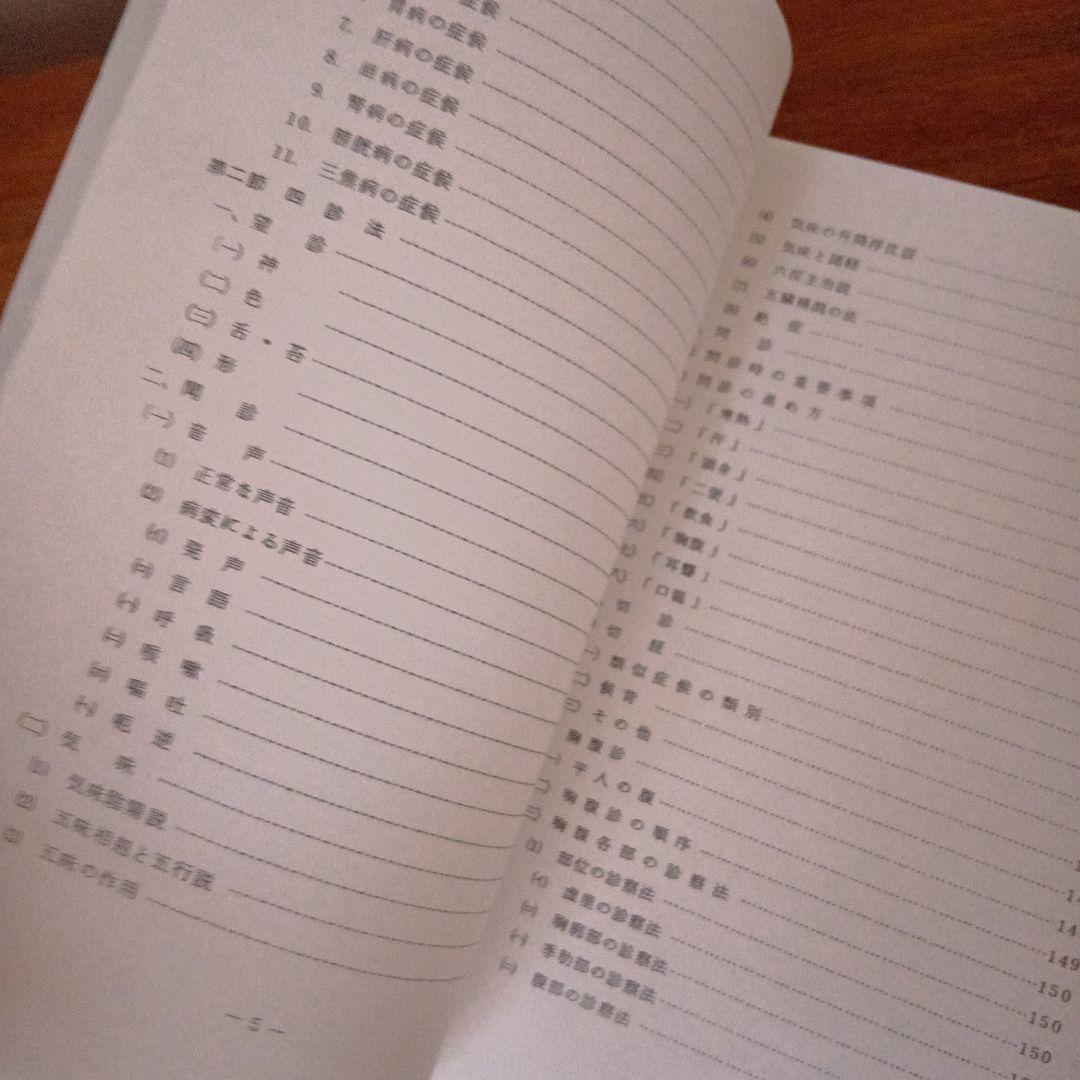 症候
胃病の症候
7. 肝病の症候
8. 病の症候
9. 腎病の症候
10. 膀胱病の症候
11. 三焦病の症候
第二節 四診法
一、望診
(一) 神
(二) 色
(三) 舌・苔
(四) 形
二、聞診
(一) 音声
(1) 正常な声音
(2) 病変による声音
(イ) 発声
(ロ) 言語
(ハ) 呼吸
(ニ) 咳嗽
(ホ) 嘔吐
(ヘ) 呃逆
(二) 気味
(1) 気味 説
(2) 五味 と五行説
(3) 五味の作用
— 5 —
(4) 気味の 説
(5) 気味と諸経
(6) 六淫主治説
(7) 五臓補瀉の法
(8) 症
問診
問診時の重要事項
問診の進め方
(一) 「寒熱」
(二) 「汗」
(三) 「頭身」
(四) 「二便」
(五) 「飲食」
(六) 「胸腹」
(七) 「耳聾」
(八) 「口渇」
切診
切経
(一) 類似症候の類別
(二) 候背
(三) その他
胸腹診
(一) 平人の腹
(二) 胸腹診の順序
(三) 胸腹各部の診察法
(1) 部位の診察法 149
(イ) 虚里の診察法 150
(ロ) 胸 部の診察法 150
(ハ) 季肋部の診察法 150
(ニ) 腹部の診察法